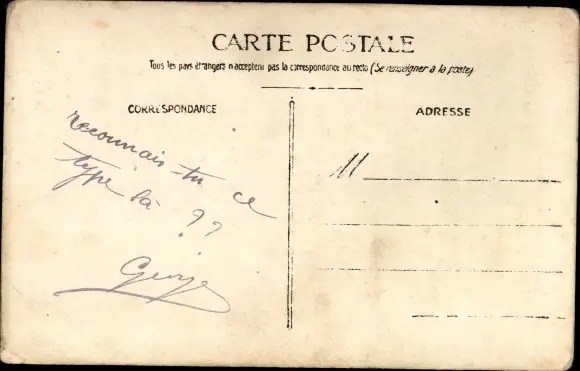 CARTE POSTALE
Tous les pays étrangers n'acceptent pas la correspondance au recto (Se renseigner à la poste)
CORRESPONDANCE
ADRESSE
reconnais tu ce
type là ??
George
M